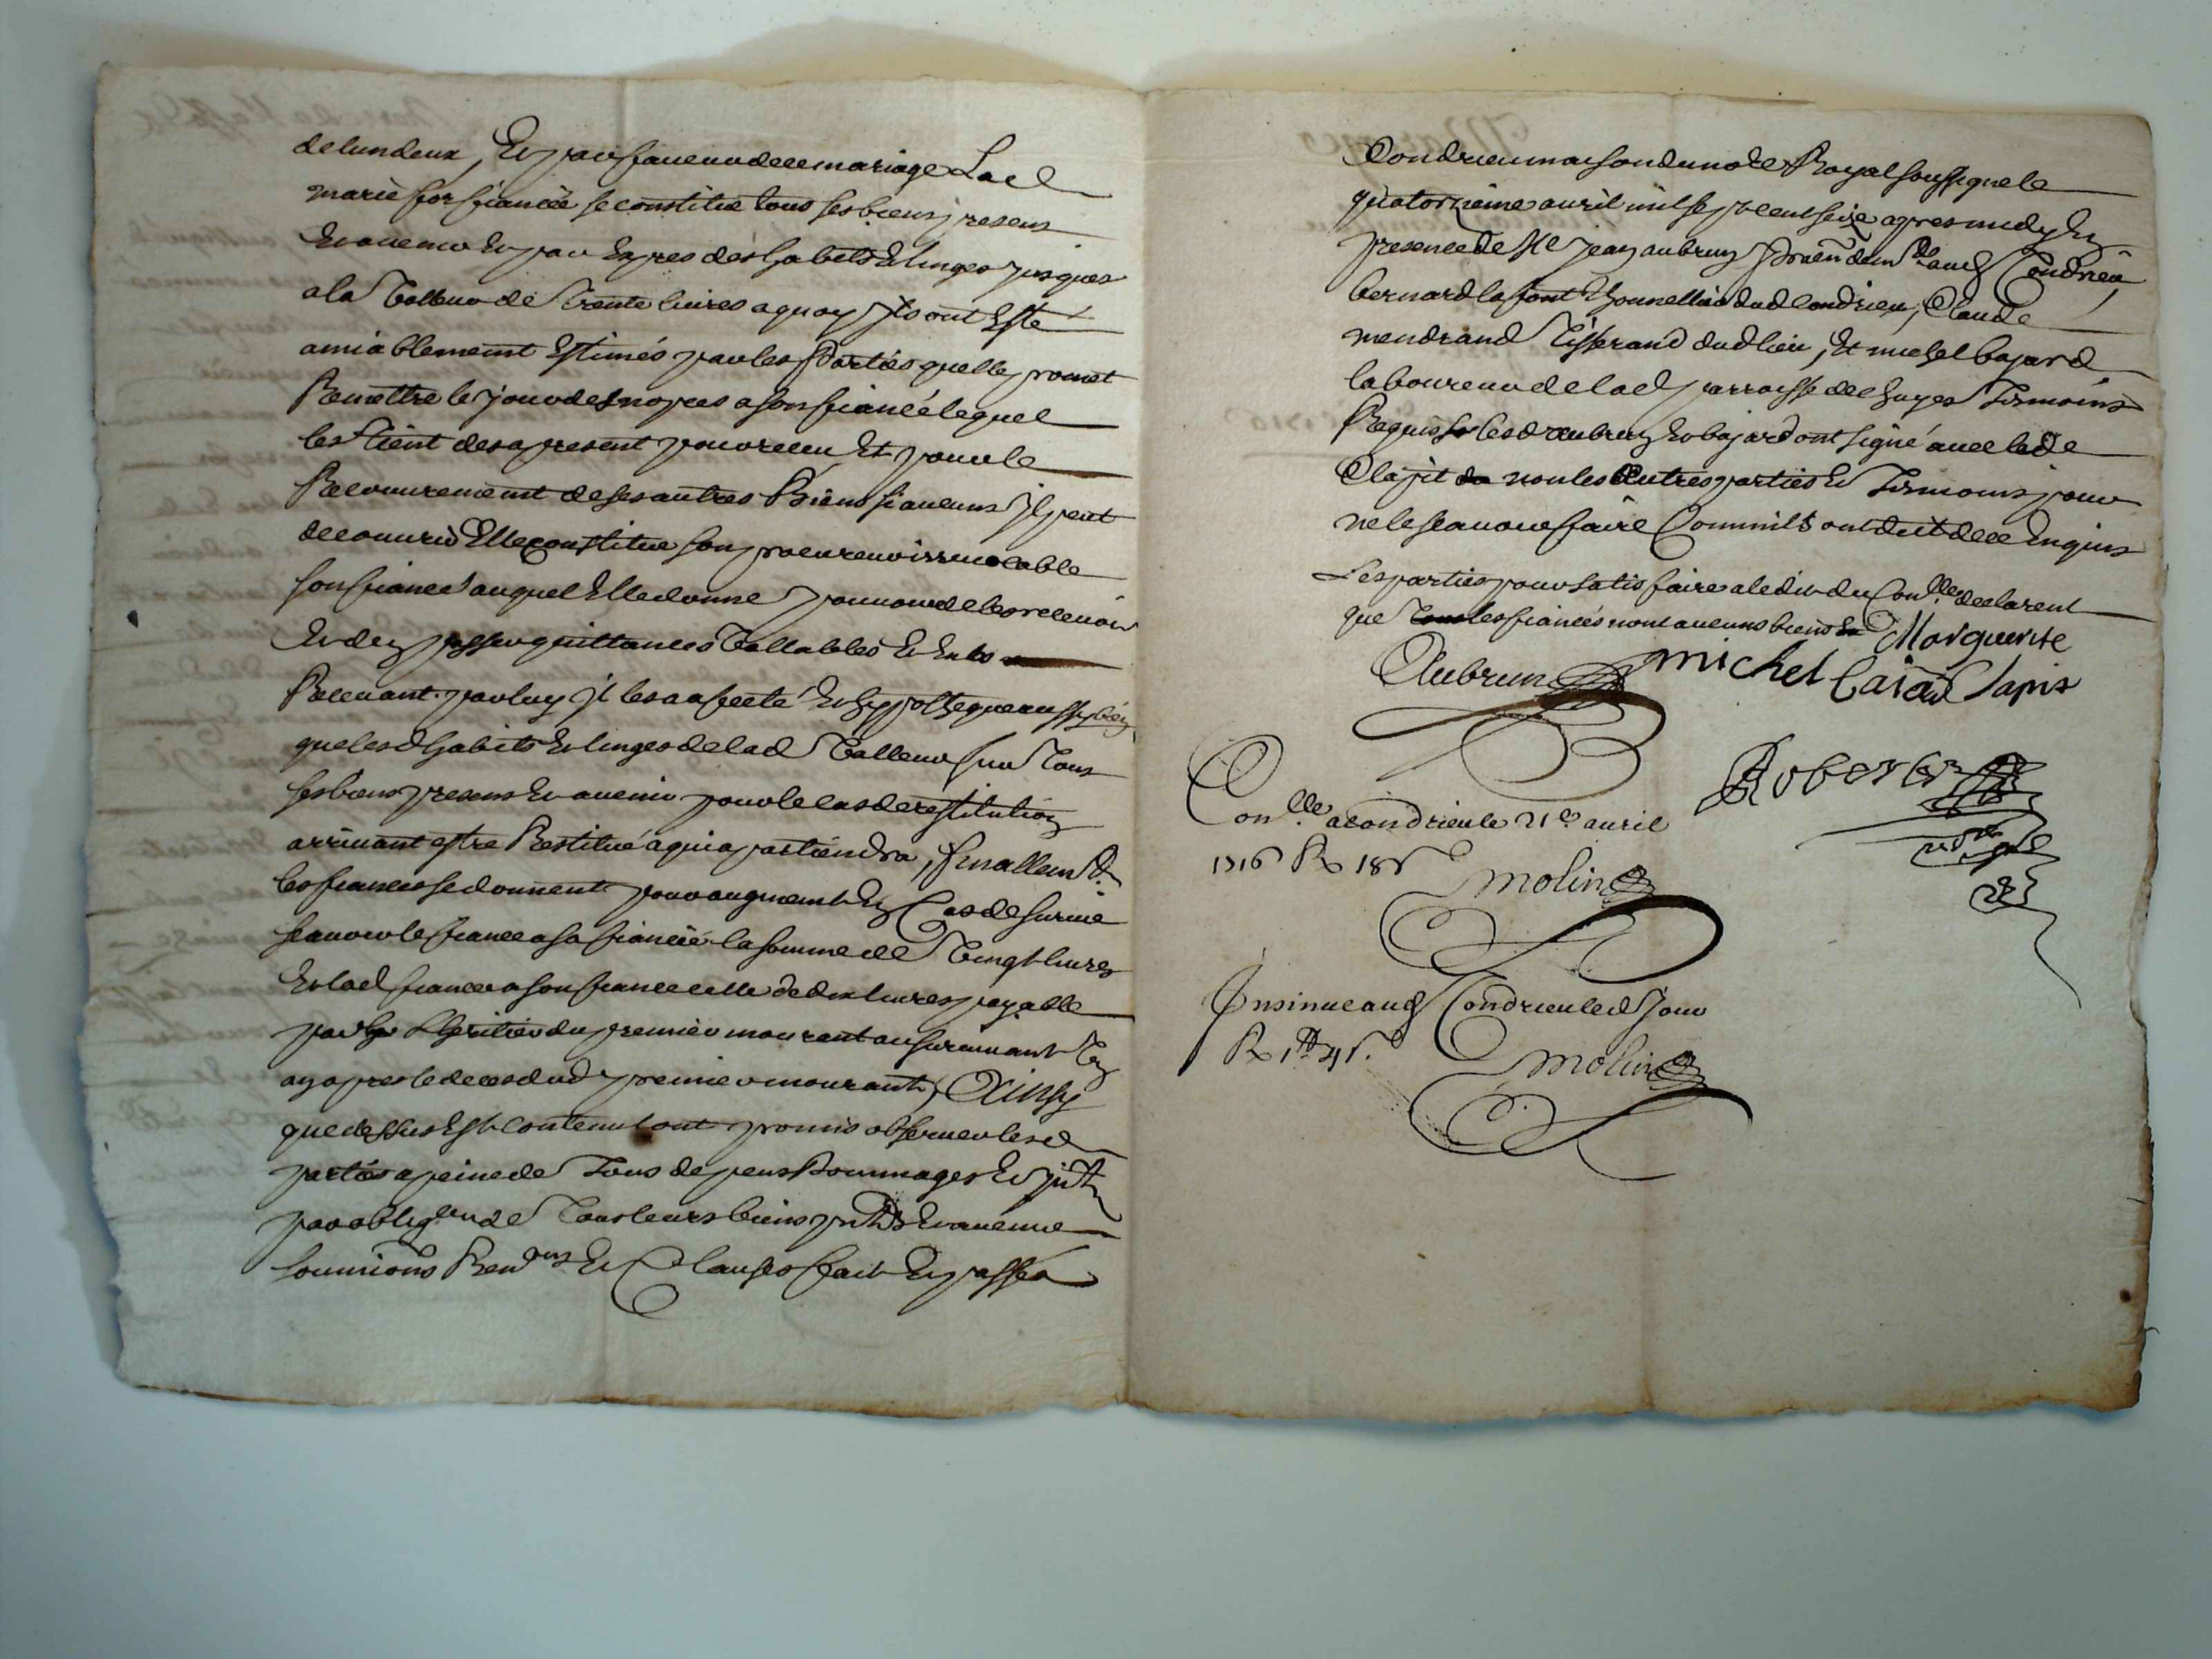 de lun deux, Et pour faueur de ce mariage Lad
marie for fiancée se constitue tous ses biens presens
Et auenir Et par Expres des habits Et linges jusques
a la Valleur de Trente liures a quoy Ils ont Esté
amiablement Estimés par les Parties quelle promet
Remettre le jour des nopces a son fiancé lequel
les Tient des a present pour receu Et pour le
Recouurement de ses autres Biens si aucuns Il peut
decouurir Elle constitue son procureur irreuocable
son fiancé auquel Elle donne pouuoir de les receuoir
Et den passer quittances Vallables Et Iceux
Receuant par luy Il les a afecté Et hyppotheque aussy bien
que lesd habits Et linges de lad Valleur sur Tous
ses biens presens Et auenir pour le cas de restitution
arriuant estre Restitué a qui apartiendra, finallemt
les fiances se donnent pour augment En Cas de suruie
scauoir le fiance a sa fiancée la somme de Vingt liures
Et lad fiancee a son fiance celle de dix liures payable
par les Heritiers du premier mourant au suruiuant Un
an apres le deces dud premier mourant, Ainsy
que dessus Est Contenu ont promis obseruer lesd
parties a peine de Tous depens Dommages Et jnts
par obligaon de Tous leurs biens pnts Et auenir
soumions Renons Et Clauses fait Et passé a
Condrieu maison du note Royal soussigné le
quatorzieme auril mil sept cent seize apres midy En
presence de Me jean aubrun demt aud Condrieu,
bernard lafont Thonnellier dud Condrieu, Claude
mendrand Tisserand dud lieu, Et michel bajard
laboureur de lad parroisse de chuyes Tesmoins
Requis lesd aubrun Et bajard ont signé auec lade
Clapit non les Autres parties Et Tesmoins pour
ne le scauoir faire Comme Ils ont dit de ce Enquis
Les parties pour satisfaire a ledit du Conlle declarent
que les fiancés nont aucuns biens Morguerite
Aubrun michel baiard Clapis
Robert
Conlle a Condrieu le 21e auril
1716 R 18s
molin
Insinue aud Condrieu led Jour
R 1tt 4s.
molin